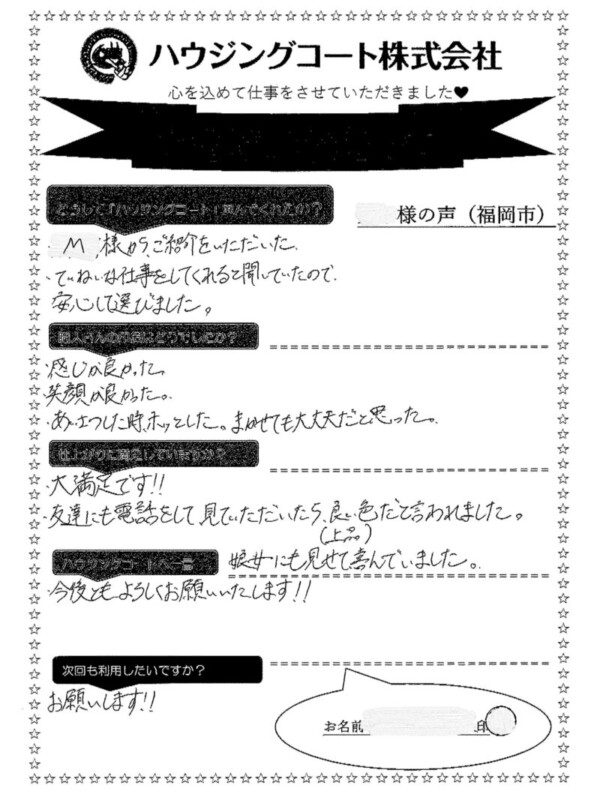 ハウジングコート株式会社
心を込めて仕事をさせていただきました♥
どうして「ハウジングコート」選んでくれたか？
様の声（福岡市）
・M様からご紹介をいただいた。
・ていねいな仕事をしてくれると聞いていたので、
安心して選びました。
職人さんの印象はどうでしたか？
・感じが良かった。
笑顔が良かった。
・あいさつした時、ホッとした。まかせても大丈夫だと思った。
仕上がりに満足していますか？
・大満足です!!
・友達にも電話をして見ていただいたら、良い色だと言われました。
（上品）
娘女にも見せて喜んでいました。
ハウジングコートへ一言
・今後ともよろしくお願いいたします!!
次回も利用したいですか？
お願いします!!
お名前 印